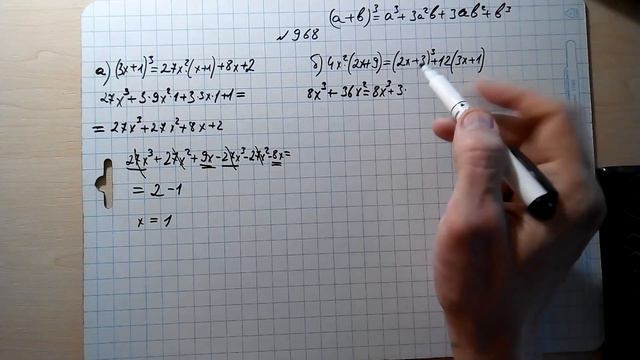 (a+b)³=a³+3a²b+3ab²+b³
№968
а) (3x+1)³=27x²(x+1)+8x+2
27x³+3·9x²·1+3·3x·1+1=
= 27x³+27x²+8x+2
27x³+27x²+9x-27x³-27x²-8x=
= 2-1
x=1
б) 4x²(2x+9)=(2x+3)³+12(3x+1)
8x³+36x²=8x³+3·